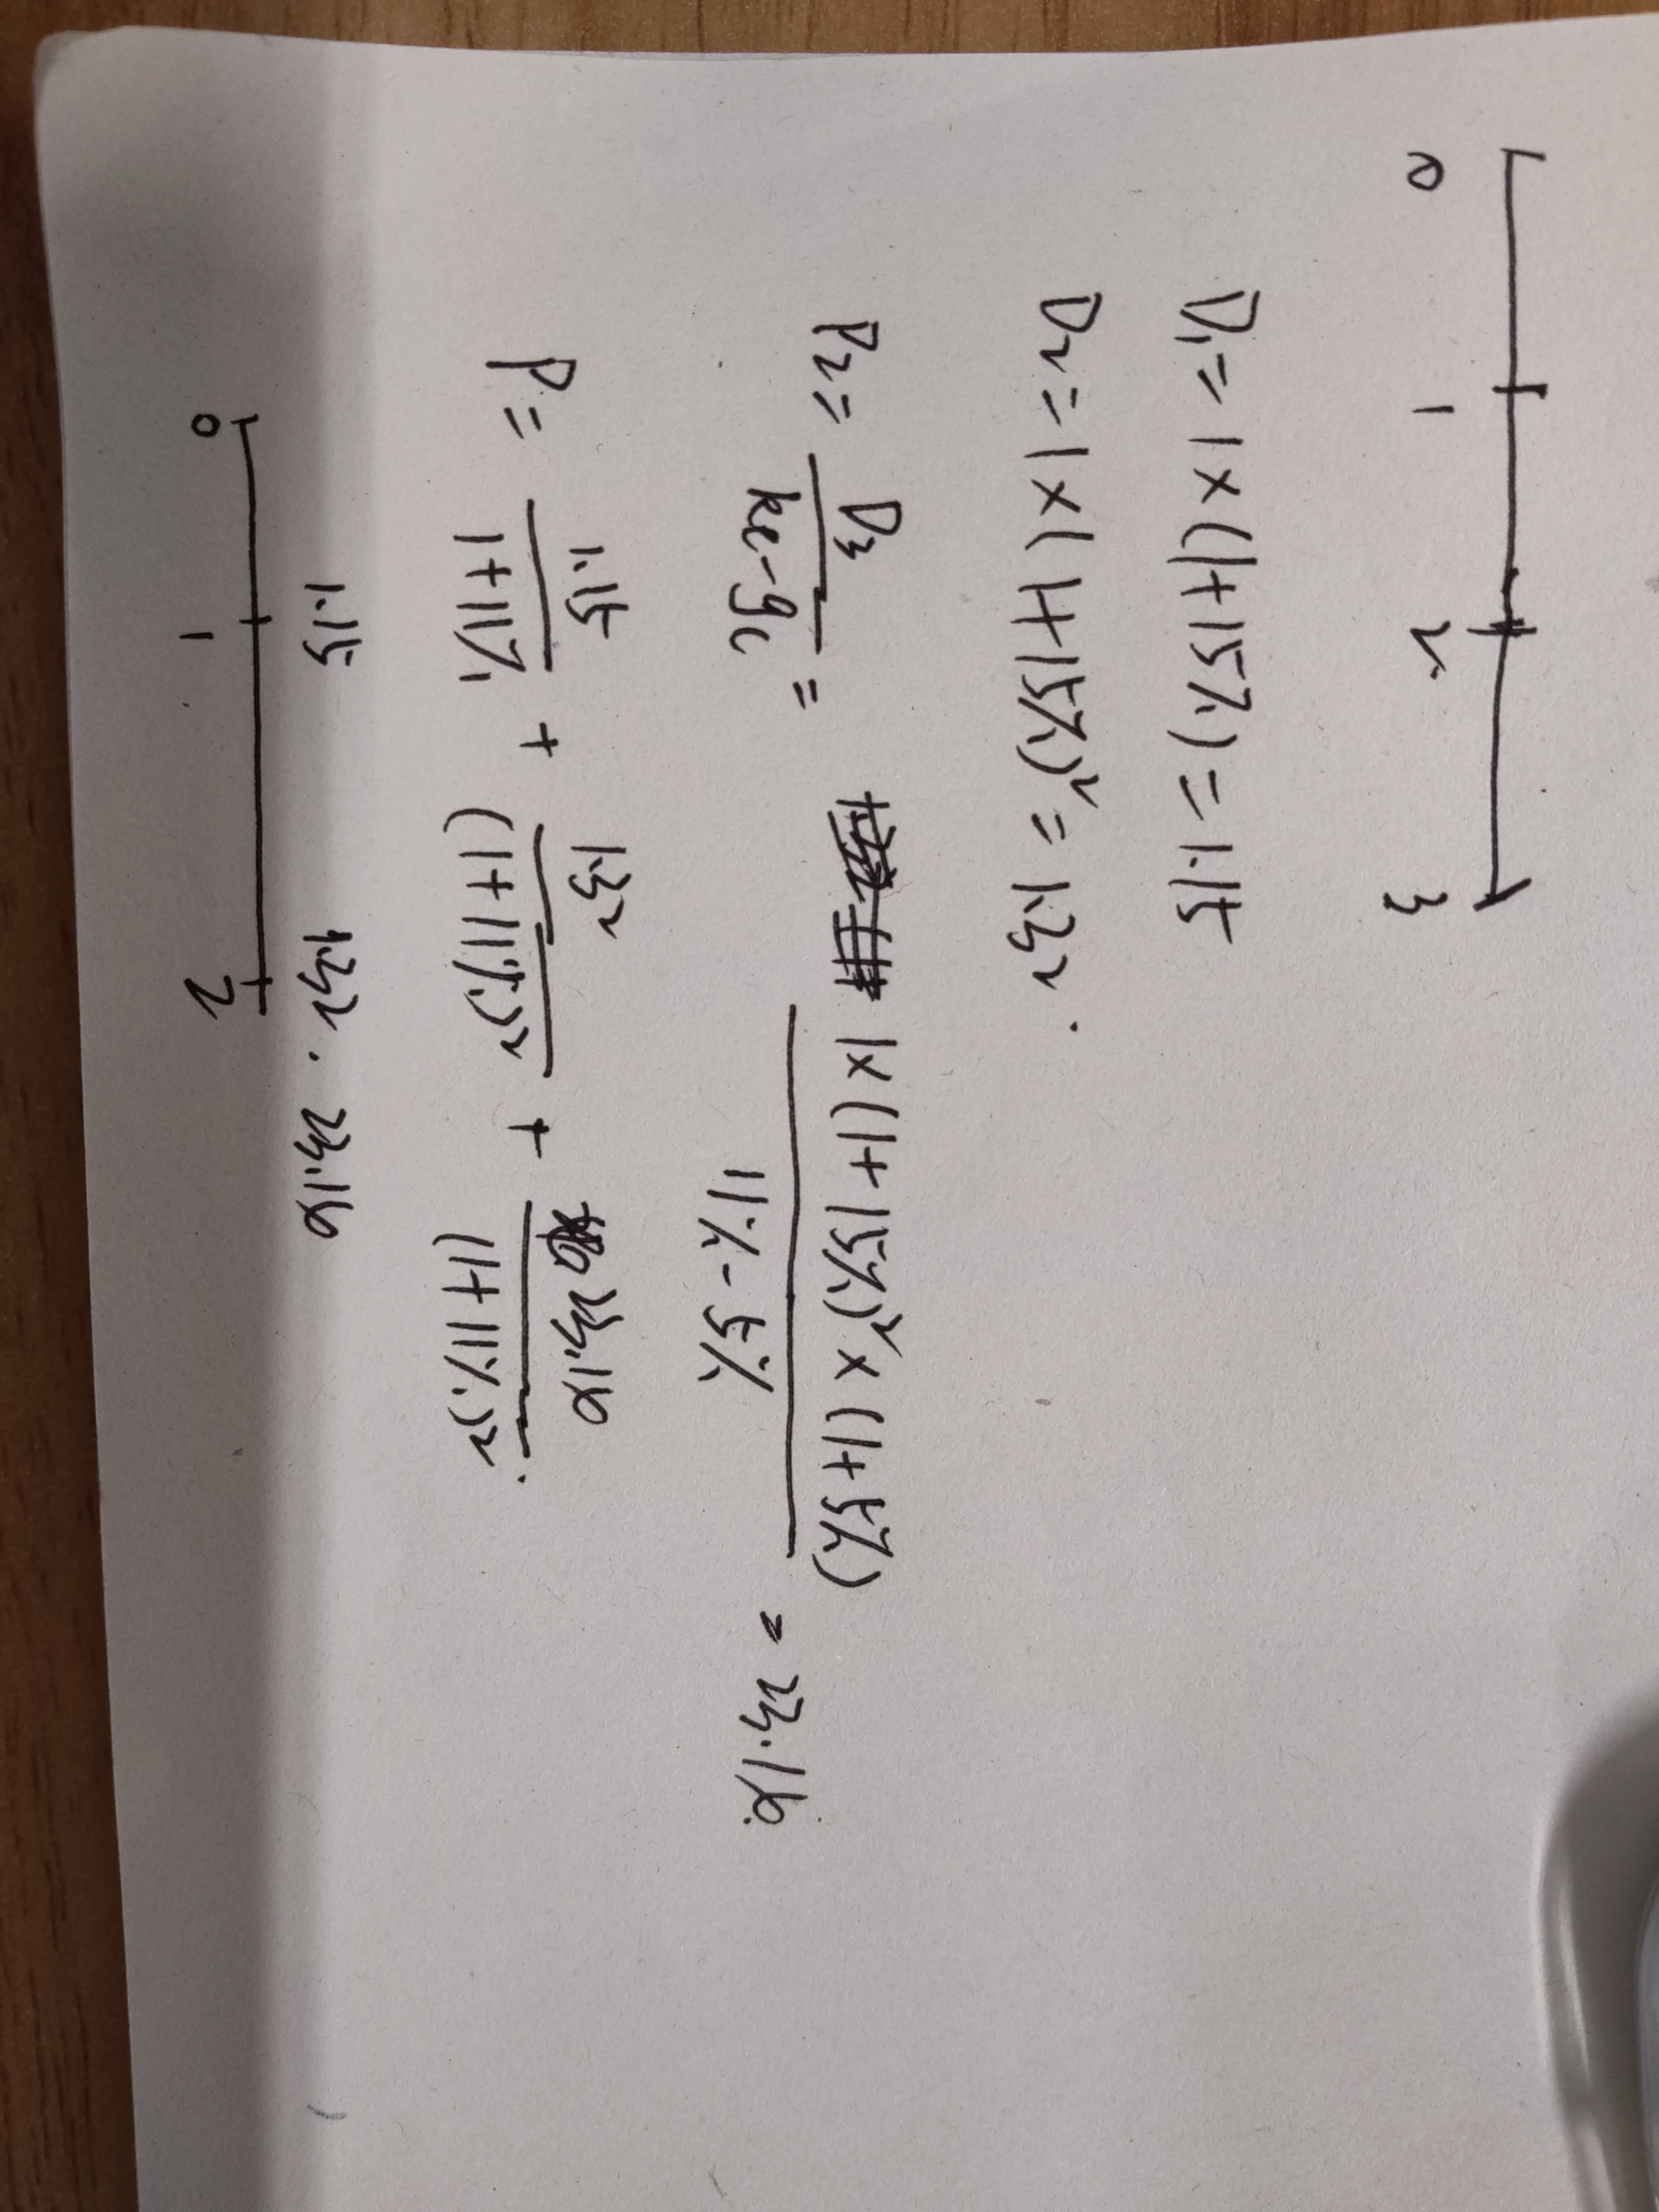 0 1 2 3
D₁ = 1 × (1+15%) = 1.15
D₂ = 1 × (1+15%)² = 1.32.
P₂ = D₃ / (ke-gc) = 1×(1+15%)²×(1+5%) / (11%-5%) = 23.16.
P = 1.15 / (1+11%) + 1.32 / (1+11%)² + 23.16 / (1+11%)².
1.15 1.32. 23.16
0 1 2